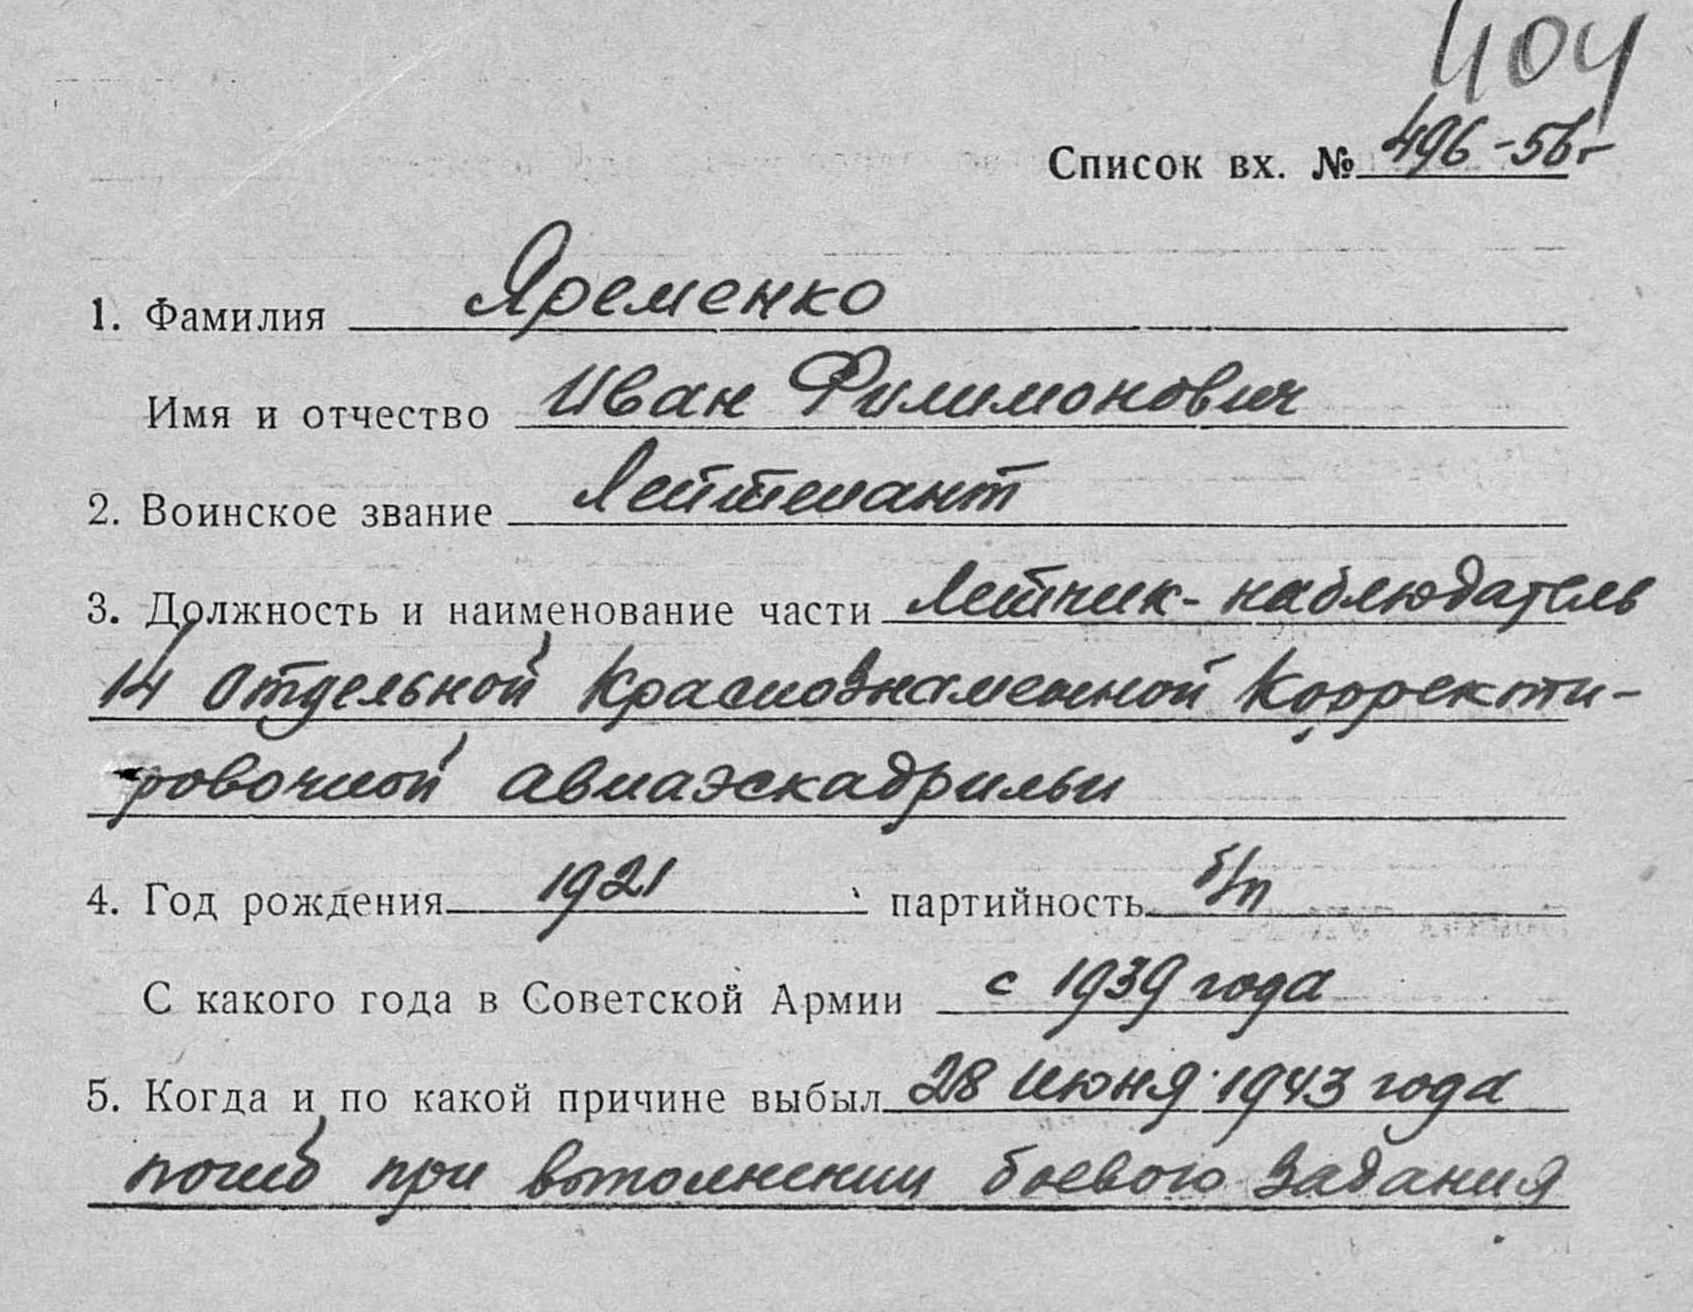 404
Список вх. № 496-56г
1. Фамилия Яременко
Имя и отчество Иван Филимонович
2. Воинское звание Лейтенант
3. Должность и наименование части Летчик-наблюдатель
14 Отдельной Краснознаменной Корректи-
ровочной авиаэскадрильи
4. Год рождения 1921 партийность б/п
С какого года в Советской Армии с 1939 года
5. Когда и по какой причине выбыл 28 июня 1943 года
погиб при выполнении боевого задания